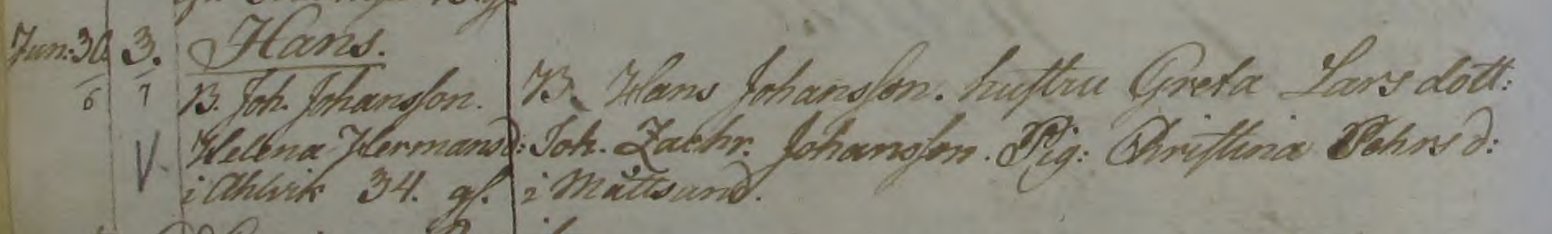 Jun: 30. 3. Hans.
6 7 B. Joh. Johansson. B. Hans Johansson. hustru Greta Larsdott:
V. Helena Hermansd: Joh. Zachr. Johansson. Pig: Christina Fehrsd:
i Ahlvik 34. gl. i Måttsund.